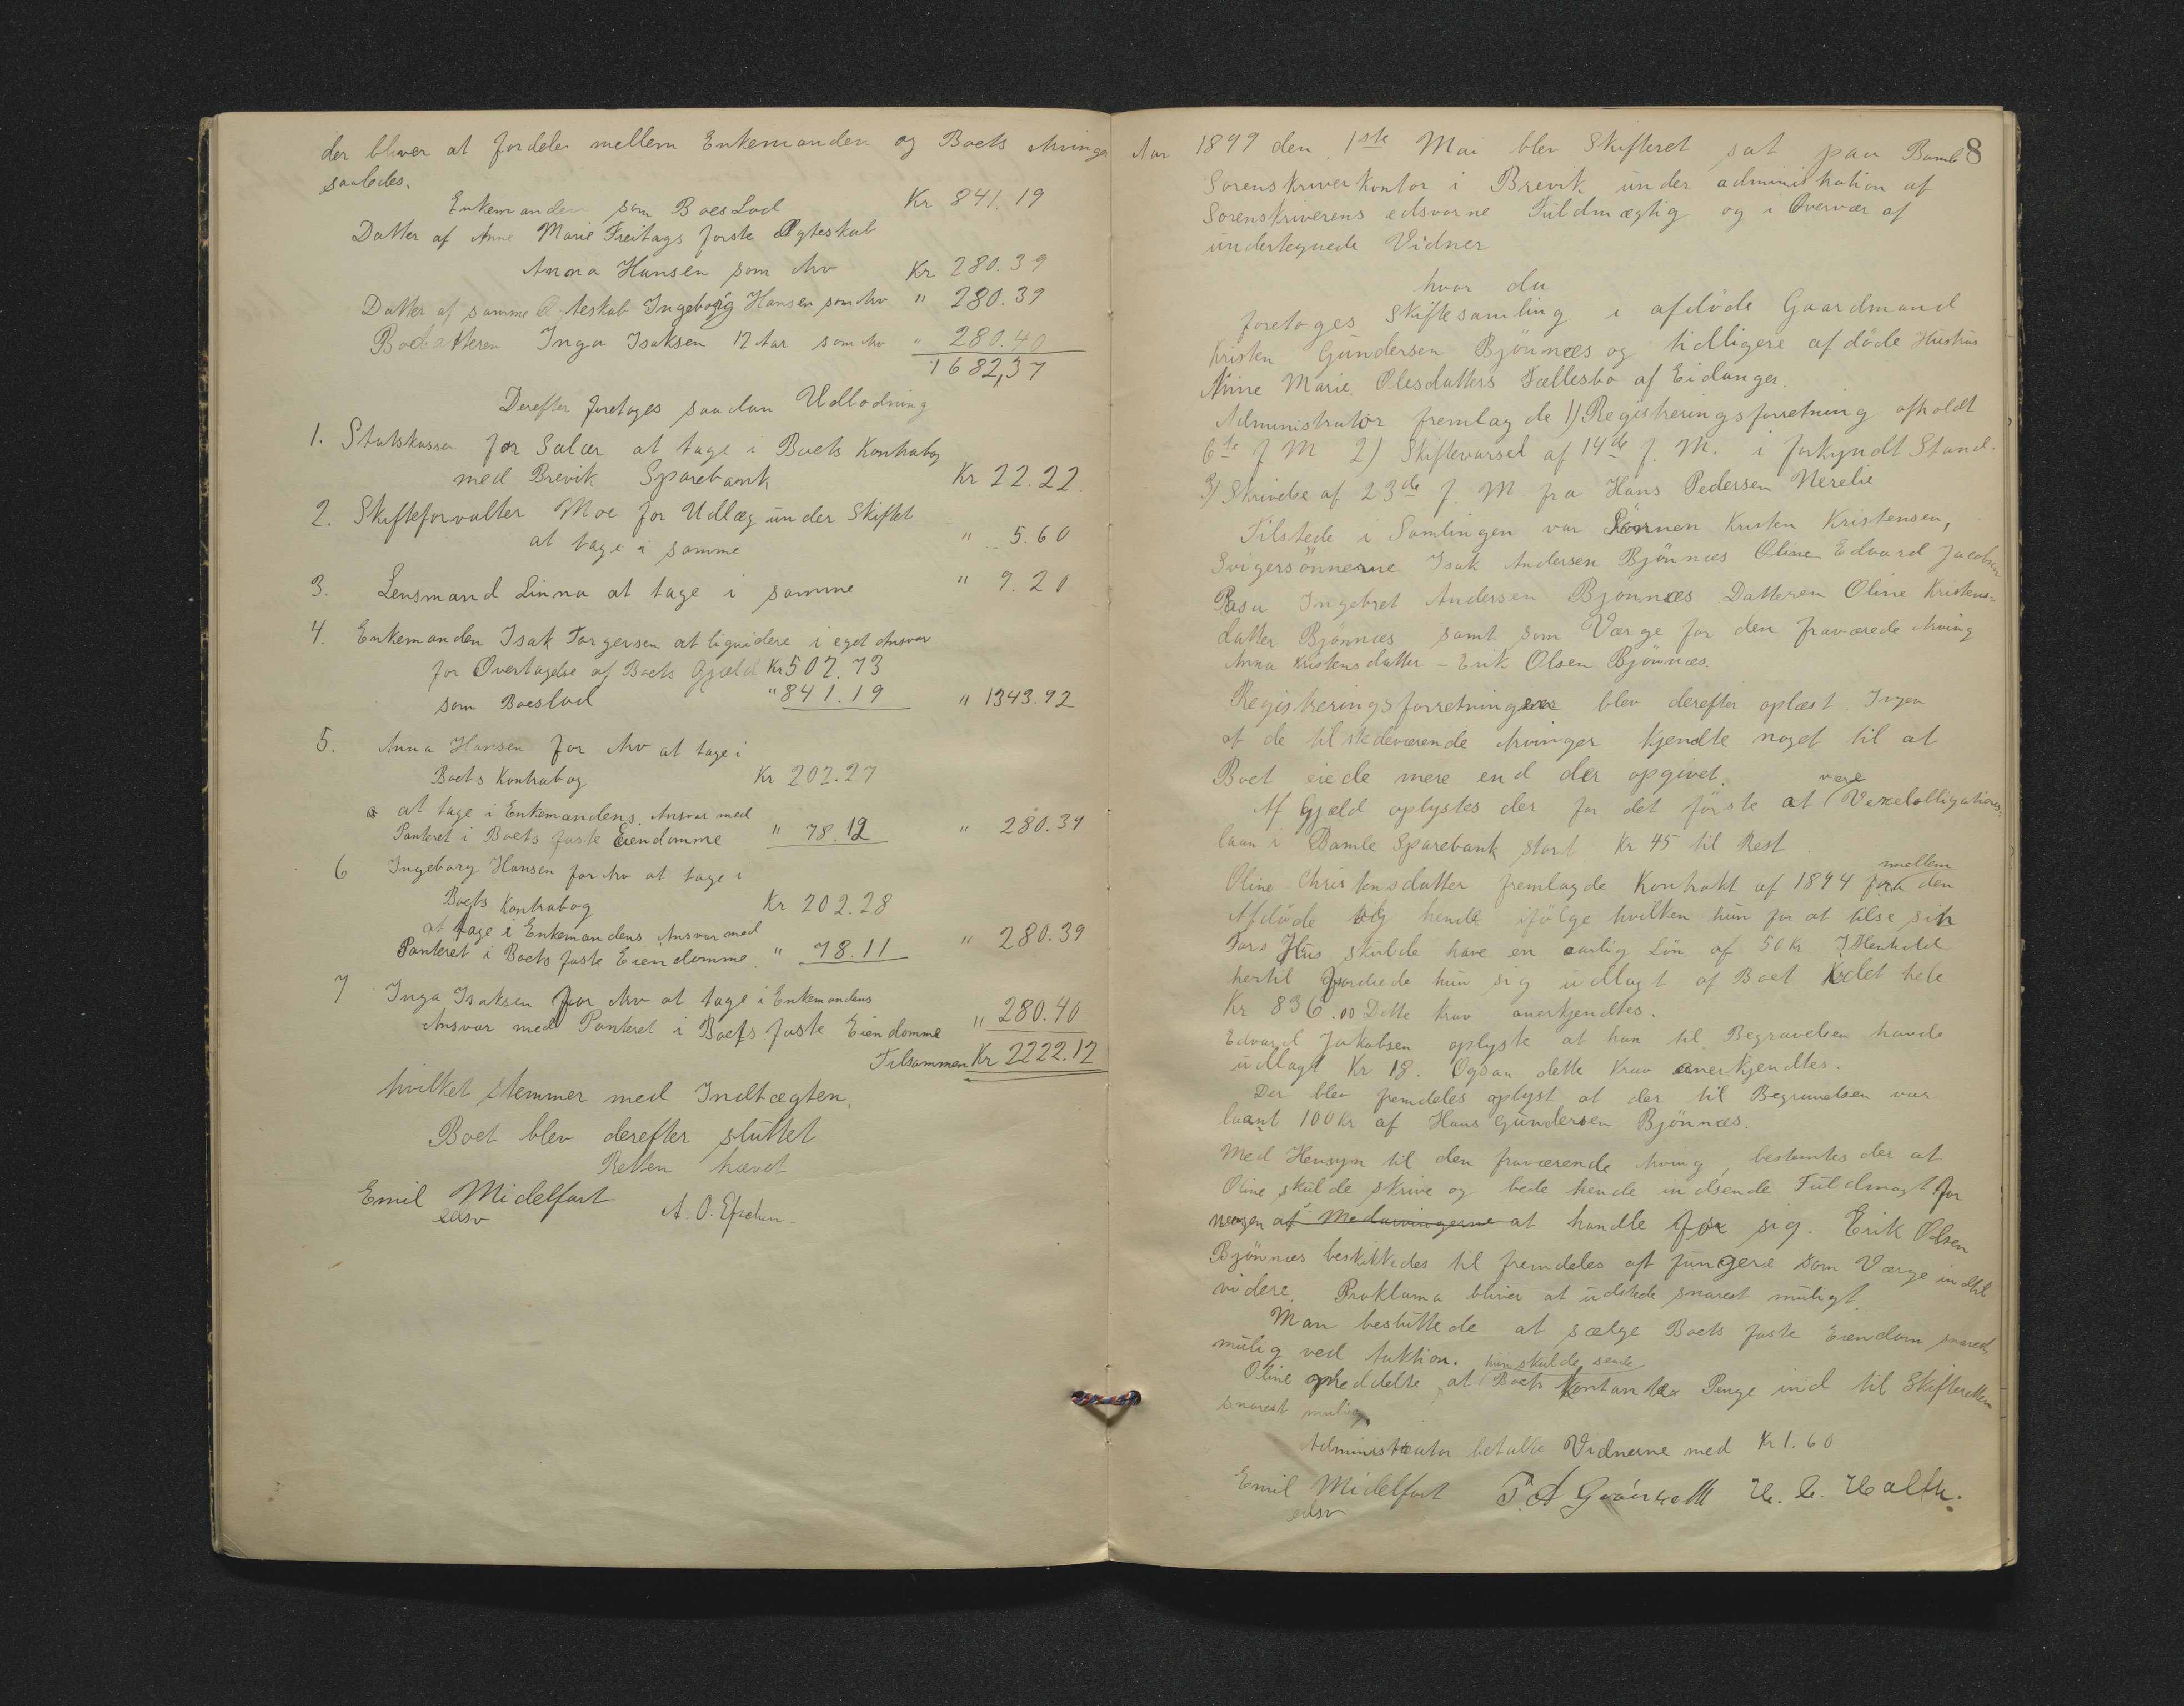 der bliver at fordele mellem Enkemanden og Boets Arvinger
saaledes.
Enkemanden som Boeslod Kr 841.19
Datter af Anne Marie Freitags første Ægteskab
Anna Hansen som Arv Kr 280.39
Datter af samme Ægteskab Ingeborg Hansen som Arv " 280.39
Bodatteren Inga Isaksen 12 Aar som Arv " 280.40
1682,37
Derefter foretoges saadan Udlodning
1. Statskassen for Salær at tage i Boets Kontrabog
med Brevik Sparebank Kr 22.22.
2. Skifteforvalter Moe for Udlæg under Skiftet
at tage i samme " 5.60
3. Lensmand Linna at tage i samme " 9.20
4. Enkemanden Isak Torgersen at liquidere i eget Ansvar
for Overtagelse af Boets Gjæld Kr 502.73
som Boeslod " 841.19 " 1343.92
5. Anna Hansen for Arv at tage i
Boets Kontrabog Kr 202.27
at tage i Enkemandens Ansvar med
Panteret i Boets faste Eiendomme " 78.12 " 280.39
6 Ingeborg Hansen for Arv at tage i
Boets Kontrabog Kr 202.28
at tage i Enkemandens Ansvar med
Panteret i Boets faste Eiendomme " 78.11 " 280.39
7 Inga Isaksen for Arv at tage i Enkemandens
Ansvar med Panteret i Boets faste Eiendomme " 280.40
Tilsammen Kr 2222.12
hvilket stemmer med Indtægten.
Boet blev derefter sluttet
Retten hævet
Emil Midelfart
edsv
8
Aar 1899 den 1ste Mai blev Skifteret sat paa Bamle
Sorenskriverkontor i Brevik under administration af
Sorenskriverens edsvorne Fuldmægtig og i Overvær af
undertegnede Vidner
hvor da
foretoges Skiftesamling i afdøde Gaardmand
Kristen Gundersen Bjønnes og tidligere afdøde Hustru
Anne Marie Olesdatters Fællesbo af Eidanger.
Administrator fremlagde 1) Registreringsforretning afholdt
6te f M 2) Skiftevarsel af 14de f. M. i forkyndt Stand.
3) Skrivelse af 23de f. M fra Hans Pedersen Nerelie
Tilstede i Samlingen var Sønnen Kristen Kristensen,
Svigersønnerne Isak Andersen Bjönnæs Oline Edvard Jacobsen
Ingebret Andersen Bjönnæs Datteren Oline Kristens-
datter Bjönnæs samt som Værge for den fraværede Arving
Anna Kristensdatter - Erik Olsen Bjönnæs.
Registreringsforretningen blev derefter oplæst. Ingen
af de tilstedeværende Arvinger kjendte noget til at
Boet eiede mere end der opgivet.
Af Gjæld oplystes der for det første at være Vexelobligations-
laan i Bamle Sparebank stort Kr 45 til Rest
Oline Christensdatter fremlagde Kontrakt af 1894 mellem den
Afdøde og hende ifølge hvilken hun for at tilse sin
Fars Hus skulde have en aarlig Løn af 50 Kr. I Henhold
hertil fordrede hun sig udlagt af Boet det hele
Kr 836.00 Dette krav anerkjendtes.
Edvard Jakobsen oplyste at han til Begravelsen havde
udlagt Kr 18. Ogsaa dette Krav anerkjendtes.
Der blev fremdeles oplyst at der til Begravelsen var
laant 100 Kr af Hans Gundersen Bjönnæs.
Med Hensyn til den fraværende Arving, bestemtes der at
Oline skulde skrive og bede hende indsende Fuldmagt for
nogen af Medarvingerne at handle for sig. Erik Olsen
Bjönnæs beskikkedes til fremdeles at fungere som Værge indtil
videre. Proklama bliver at udstede snarest muligt.
Man besluttede at sælge Boets faste Eiendom snarest
mulig ved Auktion.
Oline meddelte, at hun skulde sende Boets kontanter Penge ind til Skifteretten
snarest mulig.
Administrator betalte Vidnerne med Kr 1.60
Emil Midelfart
edsv